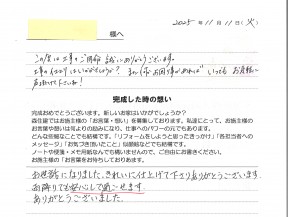 2025年11月11日(火)
様へ
この度は工事をご用命 誠にありがとうございます。
工事の仕上りはいかがでしょうか? また何かお困り事があればいつでもお気軽に
声掛け下さいね!
完成した時の想い
完成おめでとうございます。新しいお家はいかがでしょうか?
当社ではお施主様の「お言葉・想い」を募集しております。私達にとって、お施主様の
お言葉や想いは何よりの励みになり、仕事へのパワーの元でもあります。
どんな些細なことでも結構です。「リフォームをしようと思ったきっかけ」「各担当者への
メッセージ」「お気づき頂いたこと」似顔絵などでも結構です。
ノートや便箋・メモ用紙なんでも構いませんので、ご自由にお書きください。
お施主様のお言葉をお待ちしております。
お世話になりました。きれいに仕上げて下さりありがとうございます。
お陰りでも安心して過ごせます。
ありがとうございました。